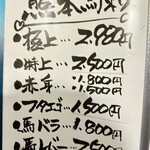 熊本馬刺
・極上…2.980円
・特上…2.500円
・赤身…1.800円
1.500円
・フタエゴ…1.500円
・馬バラ…1.800円